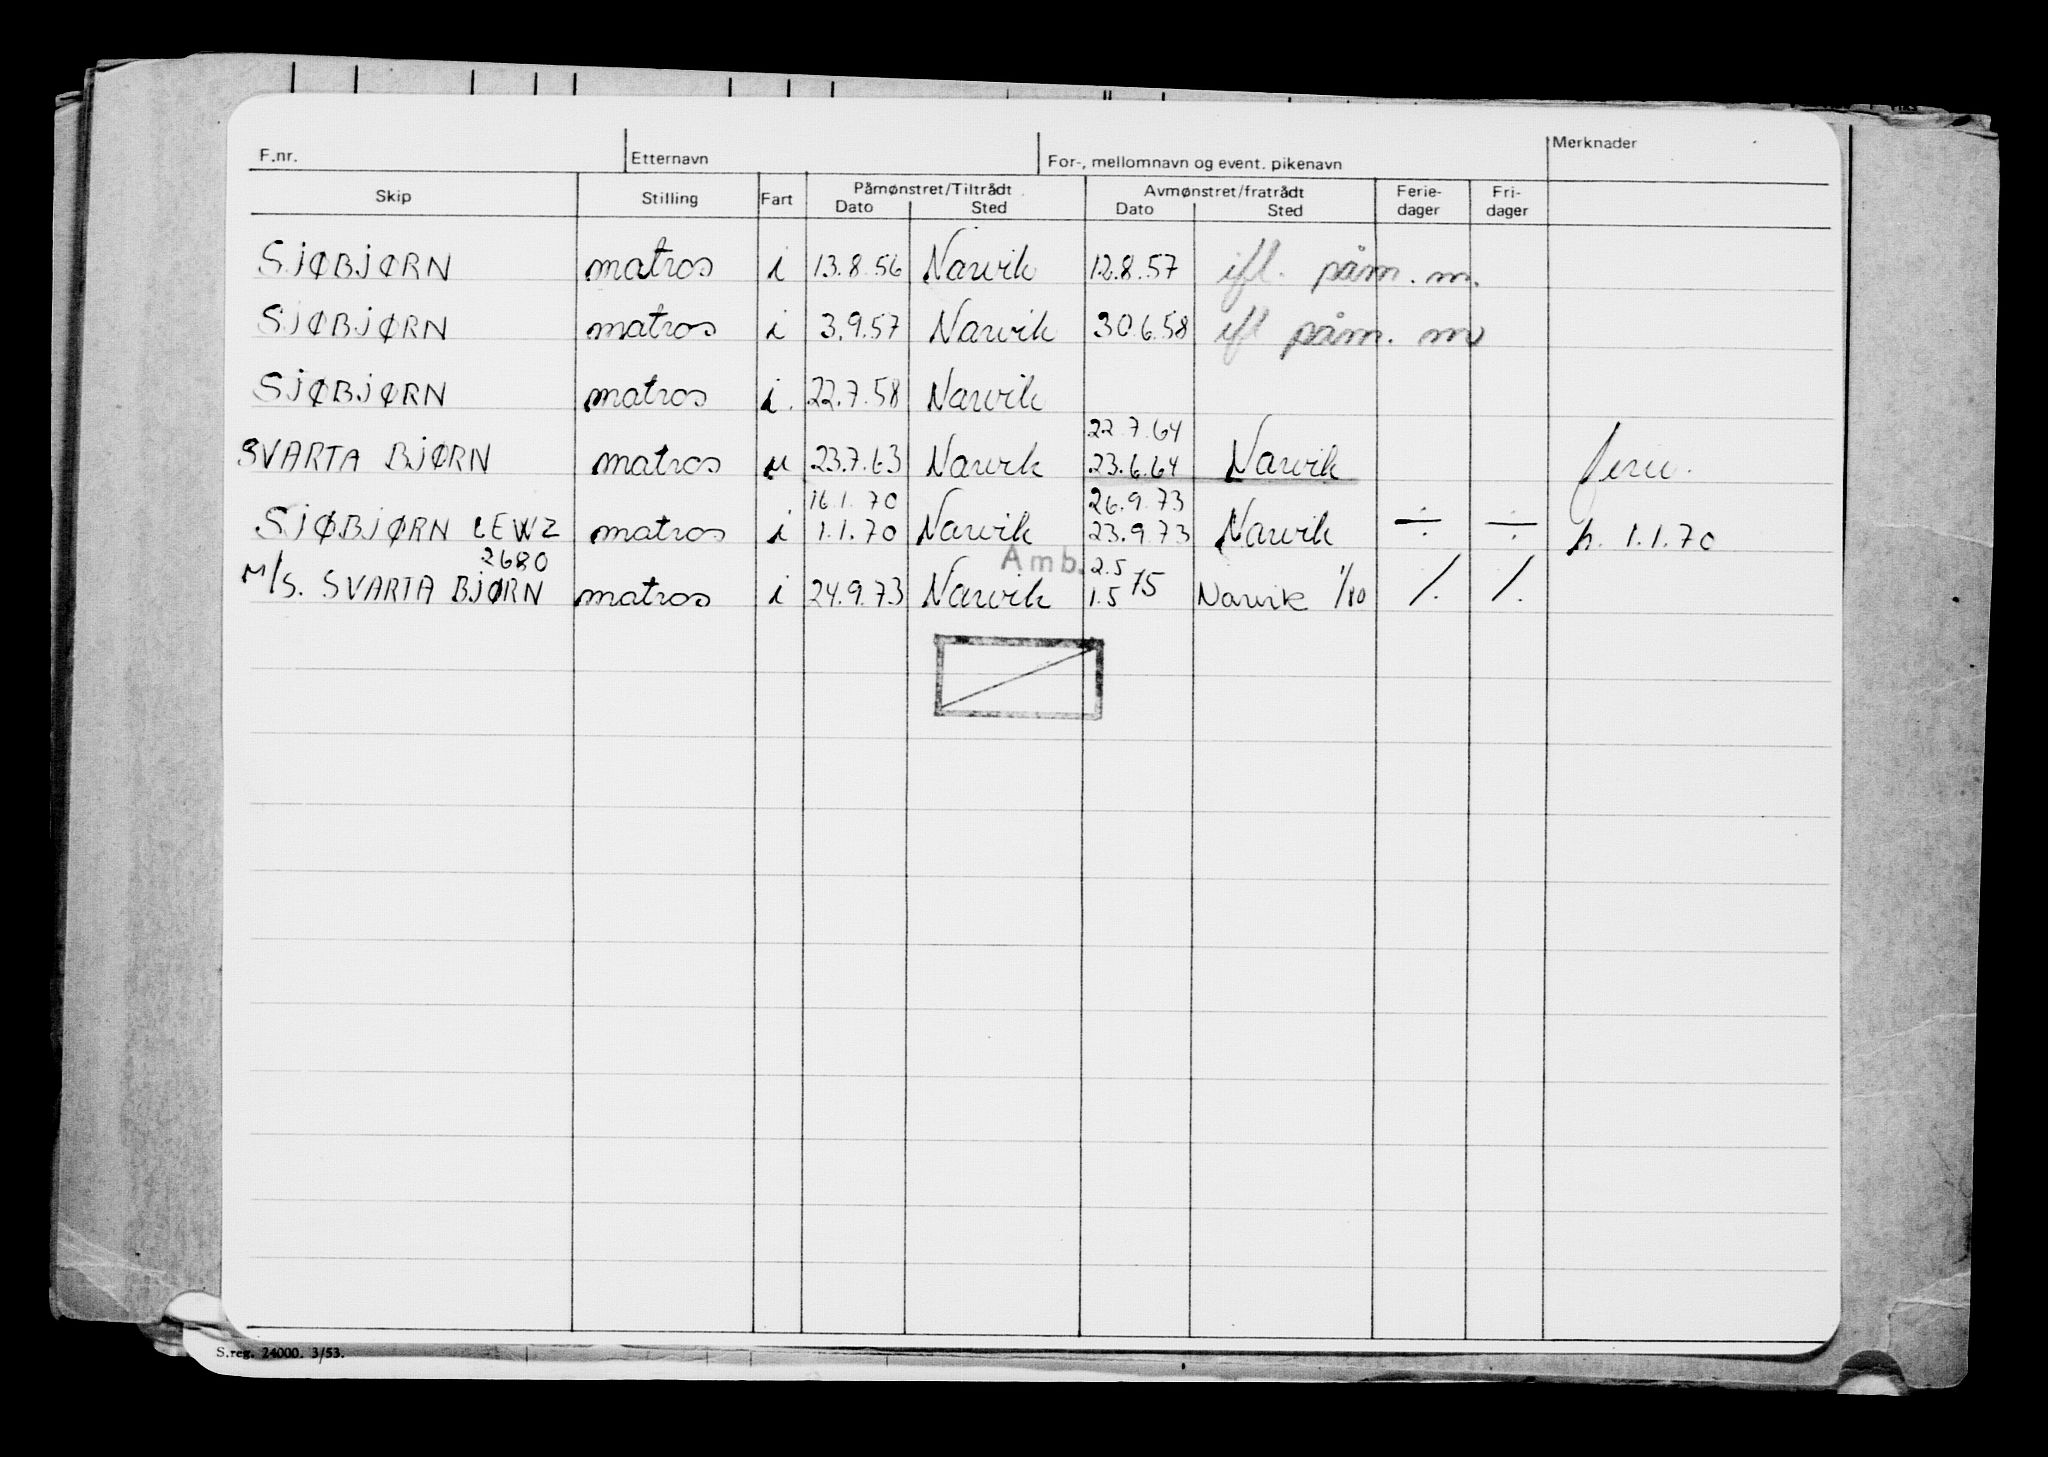 F.nr. Etternavn For-, mellomnavn og event. pikenavn Merknader
Skip Stilling Fart Påmønstret/Tiltrådt Avmønstret/fratrådt Ferie- Fri-
Dato Sted Dato Sted dager dager
SJØBJØRN matros i 13.8.56 Narvik 12.8.57 ifl. påm. m.
SJØBJØRN matros i 3.9.57 Narvik 30.6.58 ifl påm. m
SJØBJØRN matros i. 22.7.58 Narvik
22.7.64
SVARTA BJØRN matros u 23.7.63 Narvik 23.6.64 Narvik
16.1.70 26.9.73
SJØBJØRN LEWZ matros i 1.1.70 Narvik 23.9.73 Narvik ÷ ÷ h. 1.1.70
2680 Amb. 2.5
M/S. SVARTA BJØRN matros i 24.9.73 Narvik 1.5 75 Narvik 1/80 % %
S.reg. 24000. 3/53.